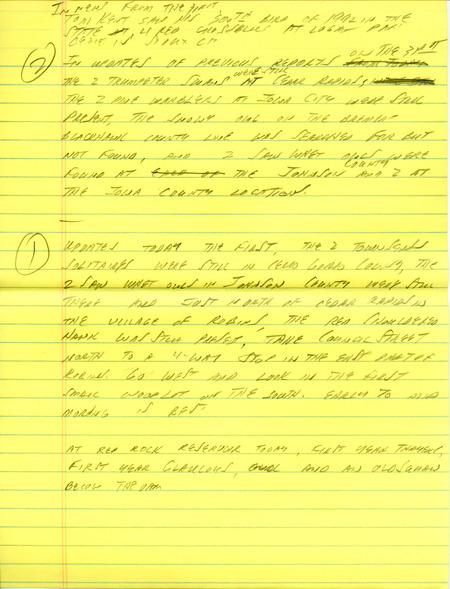 IN NEWS FROM THE 31ST
TOM KENT SAW HIS 300TH BIRD OF 1992 IN THE
STATE 4 RED CROSSBILLS AT LOGAN PARK
IN SIOUX CITY
ON THE 31ST
② IN UPDATES OF PREVIOUS REPORTS
THE 2 TRUMPETER SWANS WERE STILL AT CEDAR RAPIDS,
THE 2 PINE WARBLERS AT IOWA CITY WERE STILL
PRESENT, THE SNOWY OWL ON THE BREMER
BLACKHAWK COUNTY LINE WAS SEARCHED FOR BUT
NOT FOUND, AND 2 SAW WHET OWLS WERE
FOUND AT THE JOHNSON COUNTY AND 2 AT
THE IOWA COUNTY LOCATIONS.
① UPDATES TODAY THE FIRST, THE 2 TOWNSENDS
SOLITAIRES WERE STILL IN CERRO GORDO COUNTY, THE
2 SAW WHET OWLS IN JOHNSON COUNTY WERE STILL
THERE AND JUST NORTH OF CEDAR RAPIDS IN
THE VILLAGE OF ROBINS, THE RED SHOULDERED
HAWK WAS STILL PRESENT, TAKE COUNCIL STREET
NORTH TO A 4-WAY STOP IN THE EAST PART OF
ROBINS GO WEST AND LOOK IN THE FIRST
SMALL WOODLOT ON THE SOUTH. EARLY TO MID
MORNING IS BEST.
AT RED ROCK RESERVOIR TODAY, FIRST YEAR THAYERS,
FIRST YEAR GLAUCOUS, AND AN OLDSQUAW
BELOW THE DAM.